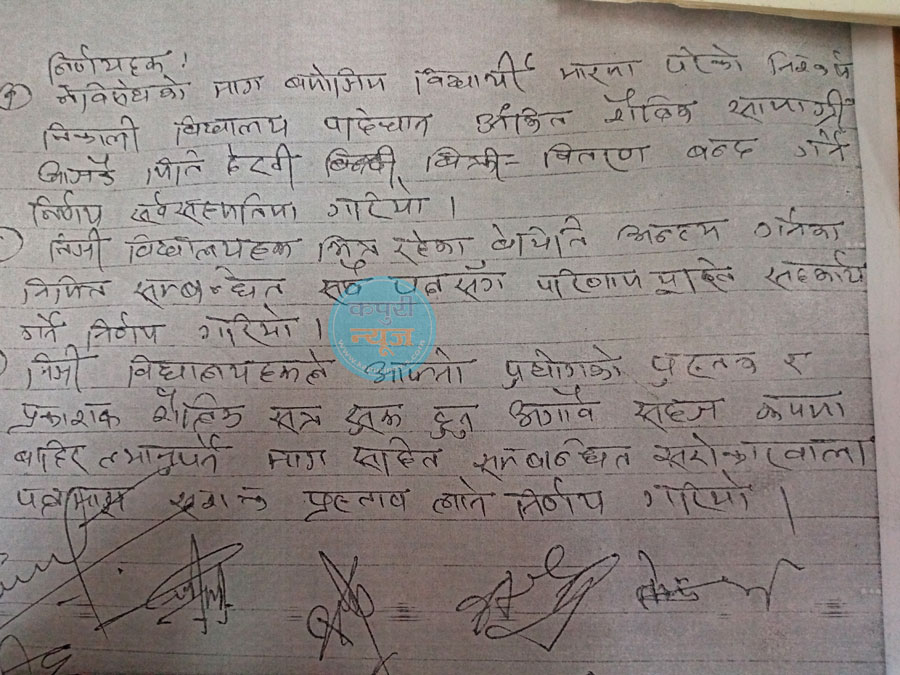 निर्णयहरू!
नेविसंघको माग बमोजिम विद्यार्थी मारमा परेको निश्कर्ष
निकाली विद्यालय पहिचान अंकित शैक्षिक सामाग्री
आजकै मिति देखी बिक्री वितरण बन्द गर्ने
निर्णय सर्वसहमतिमा गरियो।
निजी विद्यालयहरू भित्र रहेका बेथिति अन्त्य गर्नका
निमित्त सम्बन्धित सबै पक्षसँग परिणाम मूखि सहकार्य
गर्ने निर्णय गरियो।
निजी विद्यालयहरूले आफ्नो प्रयोगको पुस्तक र
प्रकाशक शैक्षिक सत्र सुरू हुनु अगावै सहज रूपमा
बाहिर ल्याउनुपर्ने माग सहित सम्बन्धित सरोकारवाला
पक्ष समक्ष प्रस्ताव लाने निर्णय गरियो।
कपुरी
न्यूज